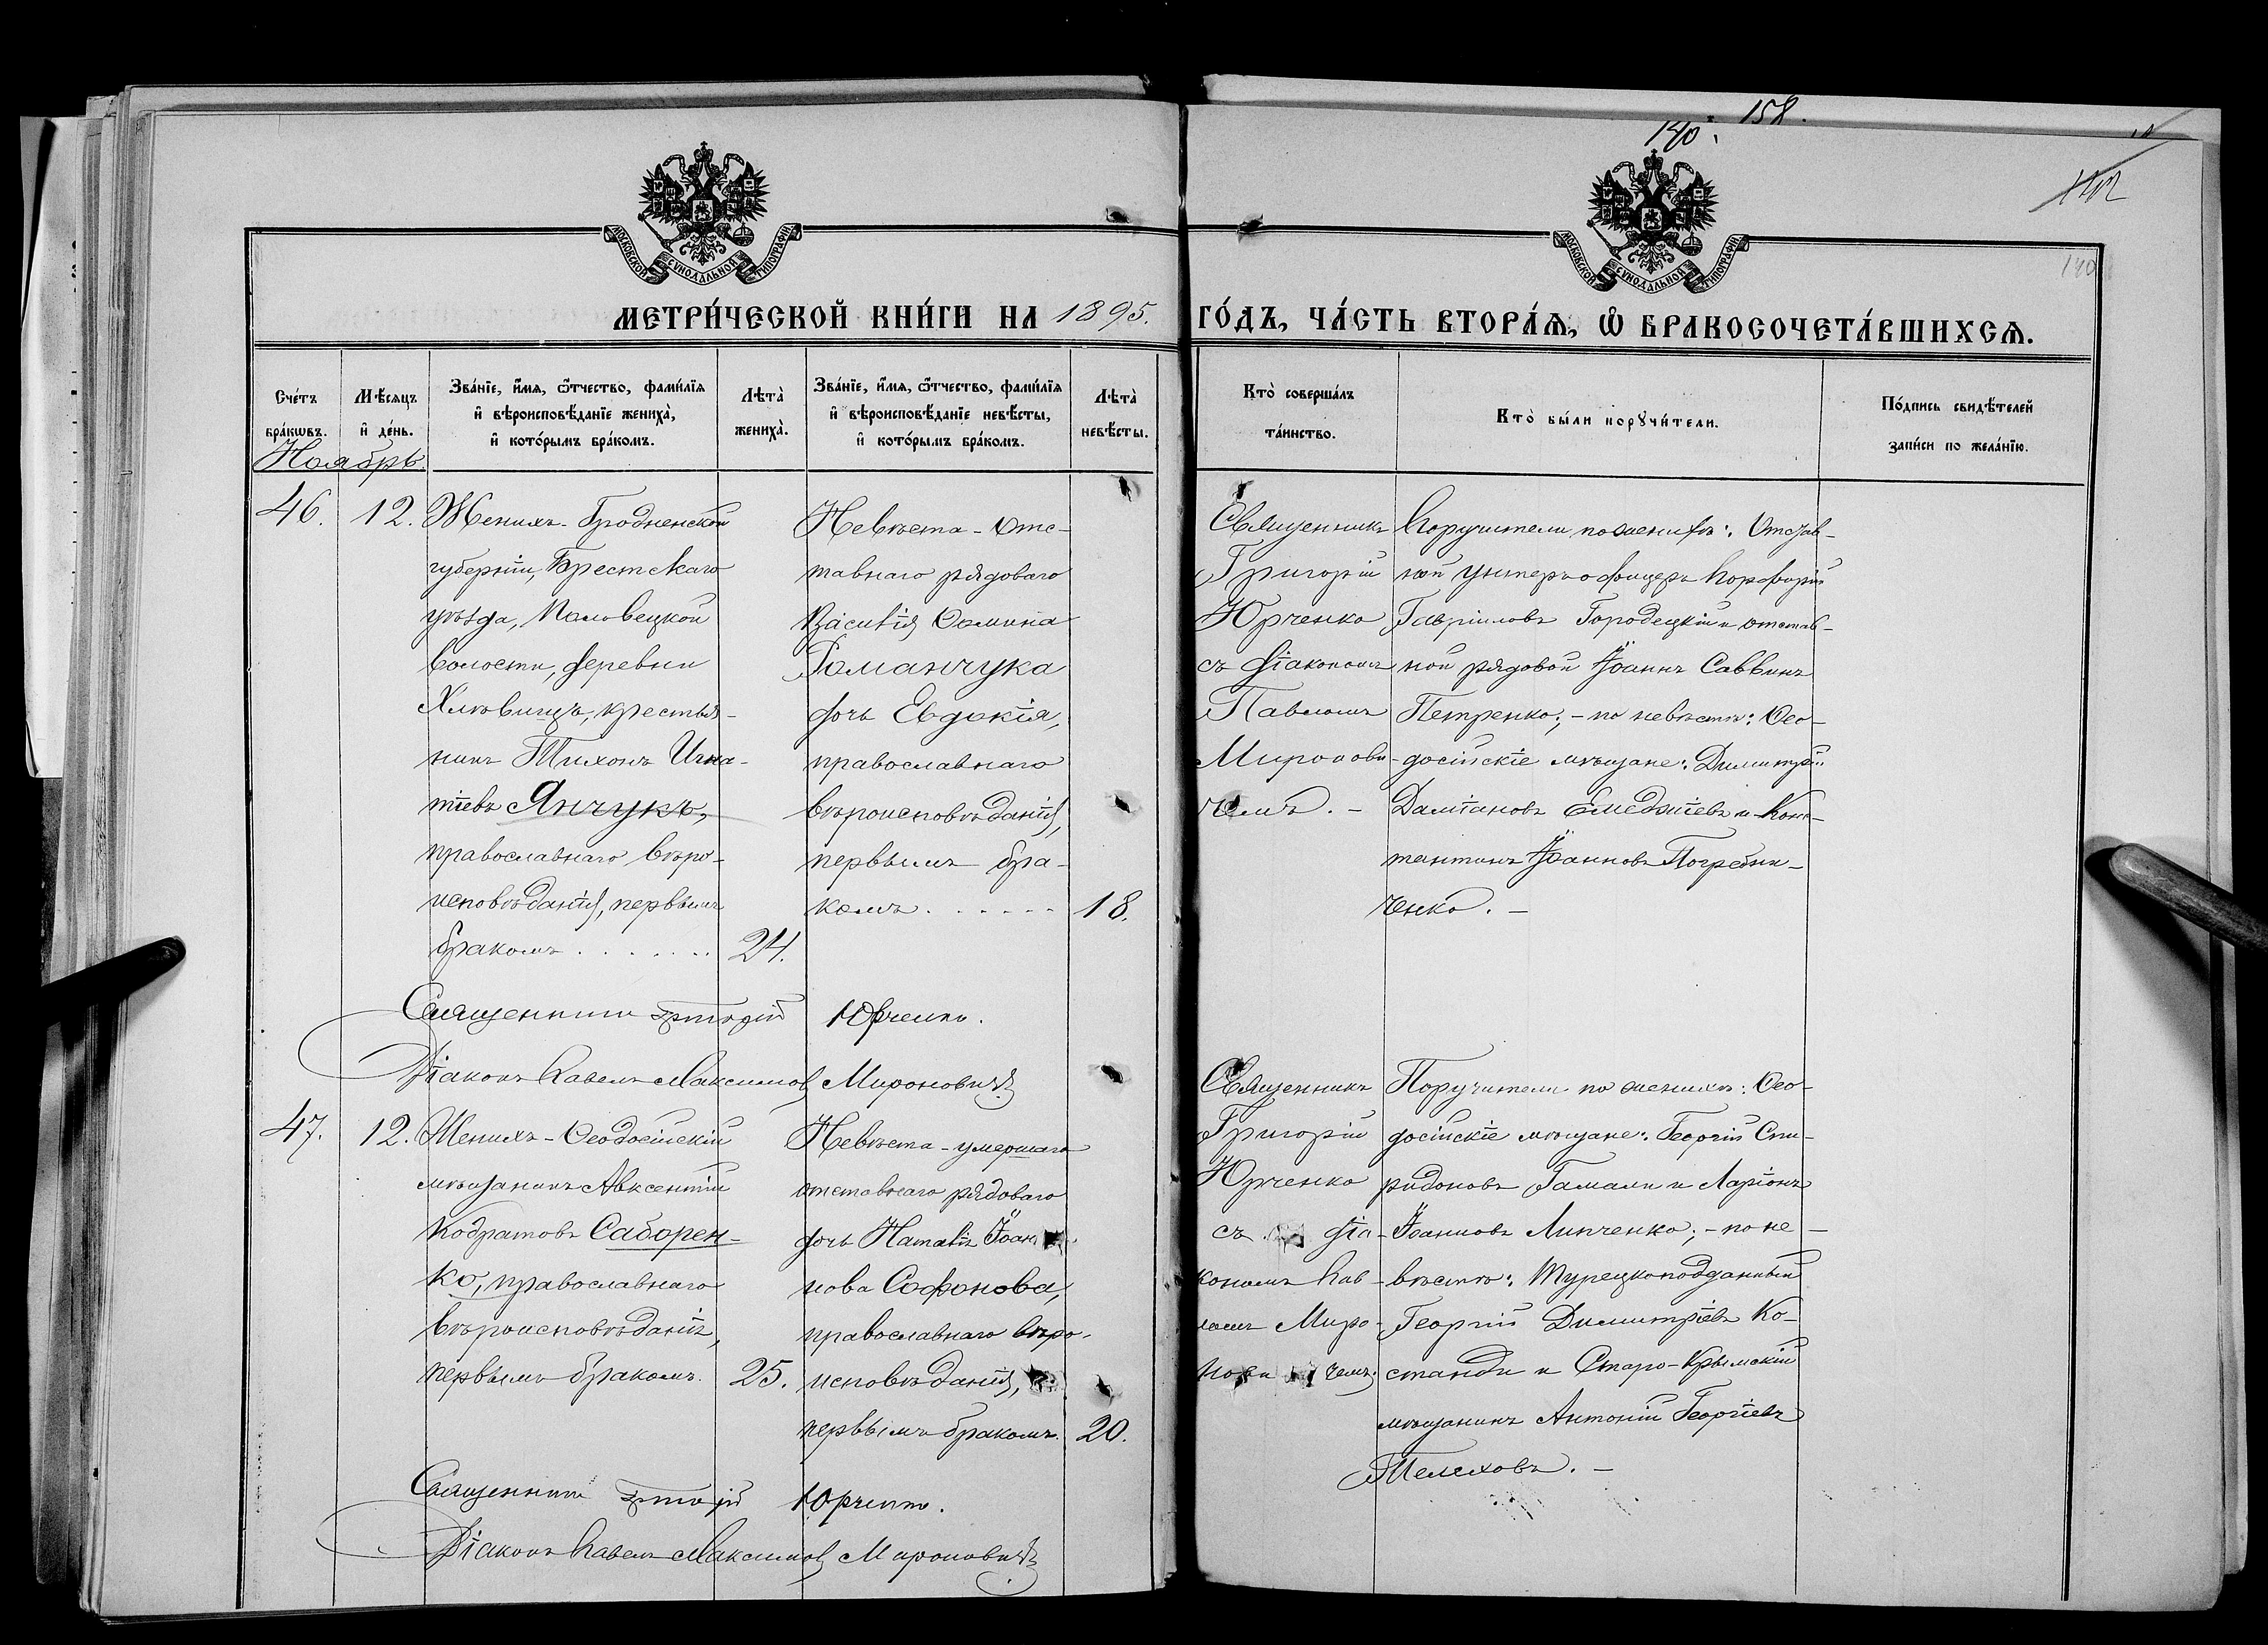 158.
140.
142
140
МОСКОВСКОЙ СѴНОДАЛЬНОЙ ТИПОГРАФІИ
МОСКОВСКОЙ СѴНОДАЛЬНОЙ ТИПОГРАФІИ
МЕТРИ́ЧЕСКОЙ КНИ́ГИ НА 1895.
ГО́ДЪ, ЧА́СТЬ ВТОРА́Ѧ, Ѽ БРАКОСОЧЕТА́ВШИХСѦ.
Сче́тъ
бра́кѡвъ.
Мѣ́сѧцъ
и҆ де́нь.
Зва́нїе, и҆́мѧ, ѻ҆́тчество, фами́лїѧ
и҆ вѣроисповѣ́данїе жениха̀,
и҆ кото́рымъ бра́комъ.
Лѣта̀
жениха̀.
Зва́нїе, и҆́мѧ, ѻ҆́тчество, фами́лїѧ
и҆ вѣроисповѣ́данїе невѣ́сты,
и҆ кото́рымъ бра́комъ.
Лѣта̀
невѣ́сты.
Кто̀ соверша́лъ
та́инство.
Кто̀ бы́ли порꙋчи́тели.
По́дпись свидѣ́телей
за́писи по жела́нїю.
Ноябрь.
46.
12.
Женихъ - Гродненской
губерніи, Брестскаго
уѣзда, Половецкой
волости, деревни
Хлѣвищъ, крестья-
нинъ Тихонъ Игна-
тіевъ Янчукъ,
православнаго вѣро-
исповѣданія, первымъ
бракомъ . . . . . . .
24.
Невѣста - Отс-
тавнаго рядоваго
Василія Ѳомина
Романчука
дочь Евдокія,
православнаго
вѣроисповѣданія,
первымъ бра-
комъ . . . . . .
18.
Священникъ
Григорій
Юрченко
съ діакономъ
Павломъ
Миронови-
чемъ. -
Поручители по женихѣ: Отстав-
ной унтеръ-офицеръ Порфирій
Гавріиловъ Городецкій и отстав-
ной рядовой Іоаннъ Саввинъ
Петренко; - по невѣстѣ: Ѳео-
досійскіе мѣщане: Димитрій
Даміановъ Емеджіевъ и Конс-
тантинъ Іоанновъ Погребни-
ченко. -
Священникъ Григорій Юрченко.
Діаконъ Павелъ Максимов Мироновичъ
47.
12.
Женихъ - Ѳеодосійскій
мѣщанинъ Авксентій
Кодратовъ Саборен-
ко, православнаго
вѣроисповѣданія,
первымъ бракомъ.
25.
Невѣста - умершаго
отставнаго рядоваго
дочь Наталія Іоан-
нова Софонова,
православнаго вѣро-
исповѣданія,
первымъ бракомъ.
20.
Священникъ
Григорій
Юрченко
съ діа-
кономъ Пав-
ломъ Миро-
нови чемъ.
Поручители по женихѣ: Ѳео-
досійскіе мѣщане: Георгій Спи-
ридоновъ Гамали и Ларіонъ
Іоанновъ Липченко; - по не-
вѣстѣ: Турецкоподданный
Георгій Димитріевъ Ко-
станди и Старо-Крымскій
мѣщанинъ Антоній Георгіевъ
Телеховъ. -
Священникъ Григорій Юрченко.
Діаконъ Павелъ Максимов Мироновичъ